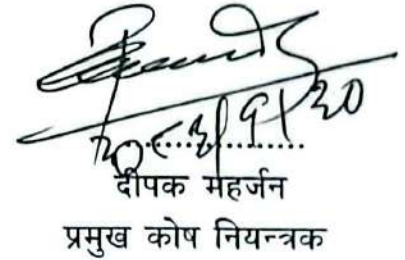 २०८३।१।२०
दीपक महर्जन
प्रमुख कोष नियन्त्रक